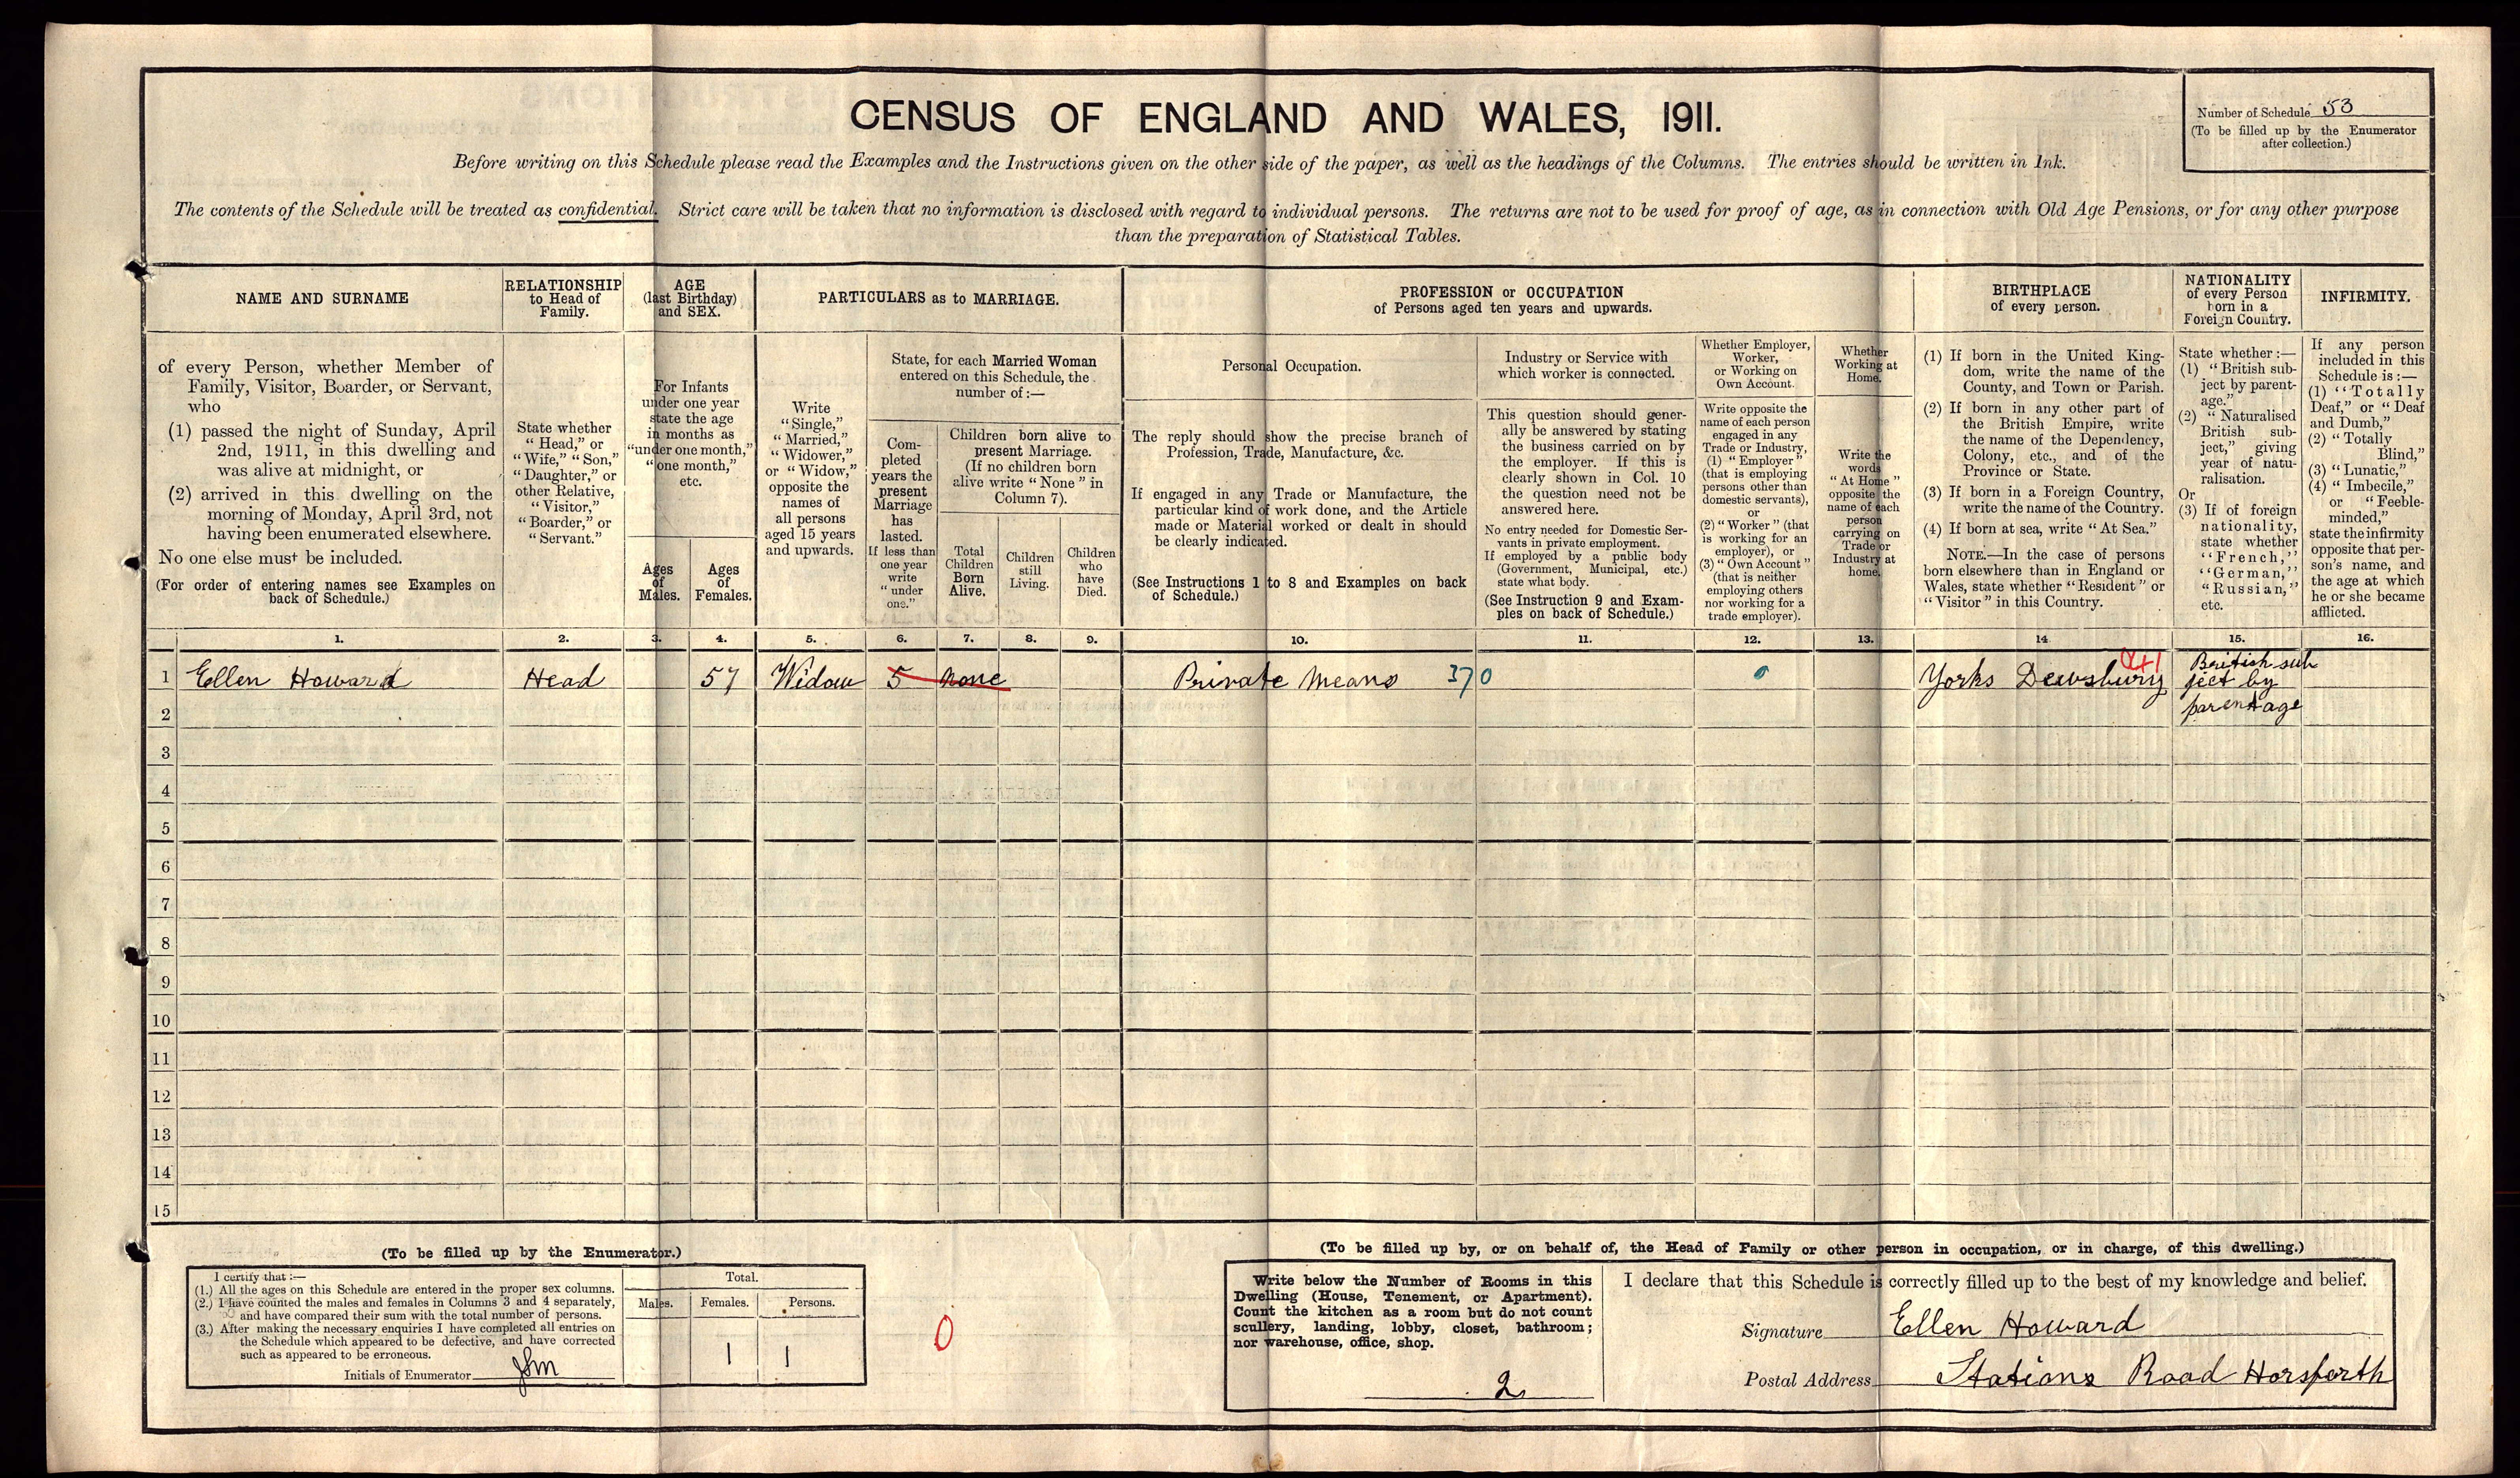 CENSUS OF ENGLAND AND WALES, 1911.
Number of Schedule 53
(To be filled up by the Enumerator
after collection.)
Before writing on this Schedule please read the Examples and the Instructions given on the other side of the paper, as well as the headings of the Columns. The entries should be written in Ink.
The contents of the Schedule will be treated as confidential. Strict care will be taken that no information is disclosed with regard to individual persons. The returns are not to be used for proof of age, as in connection with Old Age Pensions, or for any other purpose
than the preparation of Statistical Tables.
NAME AND SURNAME
of every Person, whether Member of
Family, Visitor, Boarder, or Servant,
who
(1) passed the night of Sunday, April
2nd, 1911, in this dwelling and
was alive at midnight, or
(2) arrived in this dwelling on the
morning of Monday, April 3rd, not
having been enumerated elsewhere.
No one else must be included.
(For order of entering names see Examples on
back of Schedule.)
RELATIONSHIP
to Head of
Family.
State whether
"Head," or
"Wife," "Son,"
"Daughter," or
other Relative,
"Visitor,"
"Boarder," or
"Servant."
AGE
(last Birthday)
and SEX.
For Infants
under one year
state the age
in months as
"under one month,"
"one month,"
etc.
Ages
of
Males.
Ages
of
Females.
PARTICULARS as to MARRIAGE.
Write
"Single,"
"Married,"
"Widower,"
or "Widow,"
opposite the
names of
all persons
aged 15 years
and upwards.
State, for each Married Woman
entered on this Schedule, the
number of:—
Com-
pleted
years the
present
Marriage
has
lasted.
If less than
one year
write
"under
one."
Children born alive to
present Marriage.
(If no children born
alive write "None" in
Column 7).
Total
Children
Born
Alive.
Children
still
Living.
Children
who
have
Died.
PROFESSION or OCCUPATION
of Persons aged ten years and upwards.
Personal Occupation.
The reply should show the precise branch of
Profession, Trade, Manufacture, &c.
If engaged in any Trade or Manufacture, the
particular kind of work done, and the Article
made or Material worked or dealt in should
be clearly indicated.
(See Instructions 1 to 8 and Examples on back
of Schedule.)
Industry or Service with
which worker is connected.
This question should gener-
ally be answered by stating
the business carried on by
the employer. If this is
clearly shown in Col. 10
the question need not be
answered here.
No entry needed for Domestic Ser-
vants in private employment.
If employed by a public body
(Government, Municipal, etc.)
state what body.
(See Instruction 9 and Exam-
ples on back of Schedule.)
Whether Employer,
Worker,
or Working on
Own Account.
Write opposite the
name of each person
engaged in any
Trade or Industry,
(1) "Employer"
(that is employing
persons other than
domestic servants),
or
(2) "Worker" (that
is working for an
employer), or
(3) "Own Account"
(that is neither
employing others
nor working for a
trade employer).
Whether
Working at
Home.
Write the
words
"At Home"
opposite the
name of each
person
carrying on
Trade or
Industry at
home.
BIRTHPLACE
of every person.
(1) If born in the United King-
dom, write the name of the
County, and Town or Parish.
(2) If born in any other part of
the British Empire, write
the name of the Dependency,
Colony, etc., and of the
Province or State.
(3) If born in a Foreign Country,
write the name of the Country.
(4) If born at sea, write "At Sea."
NOTE.—In the case of persons
born elsewhere than in England or
Wales, state whether "Resident" or
"Visitor" in this Country.
NATIONALITY
of every Person
born in a
Foreign Country.
State whether:—
(1) "British sub-
ject by parent-
age."
(2) "Naturalised
British sub-
ject," giving
year of natu-
ralisation.
Or
(3) If of foreign
nationality,
state whether
"French,"
"German,"
"Russian,"
etc.
INFIRMITY.
If any person
included in this
Schedule is:—
(1) "Totally
Deaf," or "Deaf
and Dumb,"
(2) "Totally
Blind,"
(3) "Lunatic,"
(4) "Imbecile,"
or "Feeble-
minded,"
state the infirmity
opposite that per-
son's name, and
the age at which
he or she became
afflicted.
1. 2. 3. 4. 5. 6. 7. 8. 9. 10. 11. 12. 13. 14 15. 16.
1 Ellen Howard Head 57 Widow 5 none Private Means 370 0 Yorks Dewsbury British sub
ject by
parentage
2
3
4
5
6
7
8
9
10
11
12
13
14
15
(To be filled up by the Enumerator.)
I certify that:—
(1.) All the ages on this Schedule are entered in the proper sex columns.
(2.) I have counted the males and females in Columns 3 and 4 separately,
and have compared their sum with the total number of persons.
(3.) After making the necessary enquiries I have completed all entries on
the Schedule which appeared to be defective, and have corrected
such as appeared to be erroneous.
Initials of Enumerator
Total.
Males. Females. Persons.
1 1
0
(To be filled up by, or on behalf of, the Head of Family or other person in occupation, or in charge, of this dwelling.)
Write below the Number of Rooms in this
Dwelling (House, Tenement, or Apartment).
Count the kitchen as a room but do not count
scullery, landing, lobby, closet, bathroom;
nor warehouse, office, shop.
2
I declare that this Schedule is correctly filled up to the best of my knowledge and belief.
Signature Ellen Howard
Postal Address Stations Road Horsforth